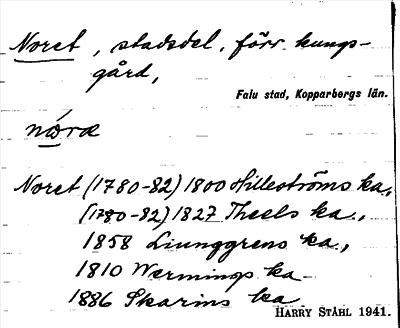 Noret, stadsdel, förr kungs-
gård,
Falu stad, Kopparbergs län.
næ´ræ
Noret (1780-82) 1800 Hilleströms ka.,
(1780-82) 1827 Theels ka.,
1858 Liunggrens ka.,
1810 Wermings ka
1886 Skarins ka
HARRY STÅHL 1941.